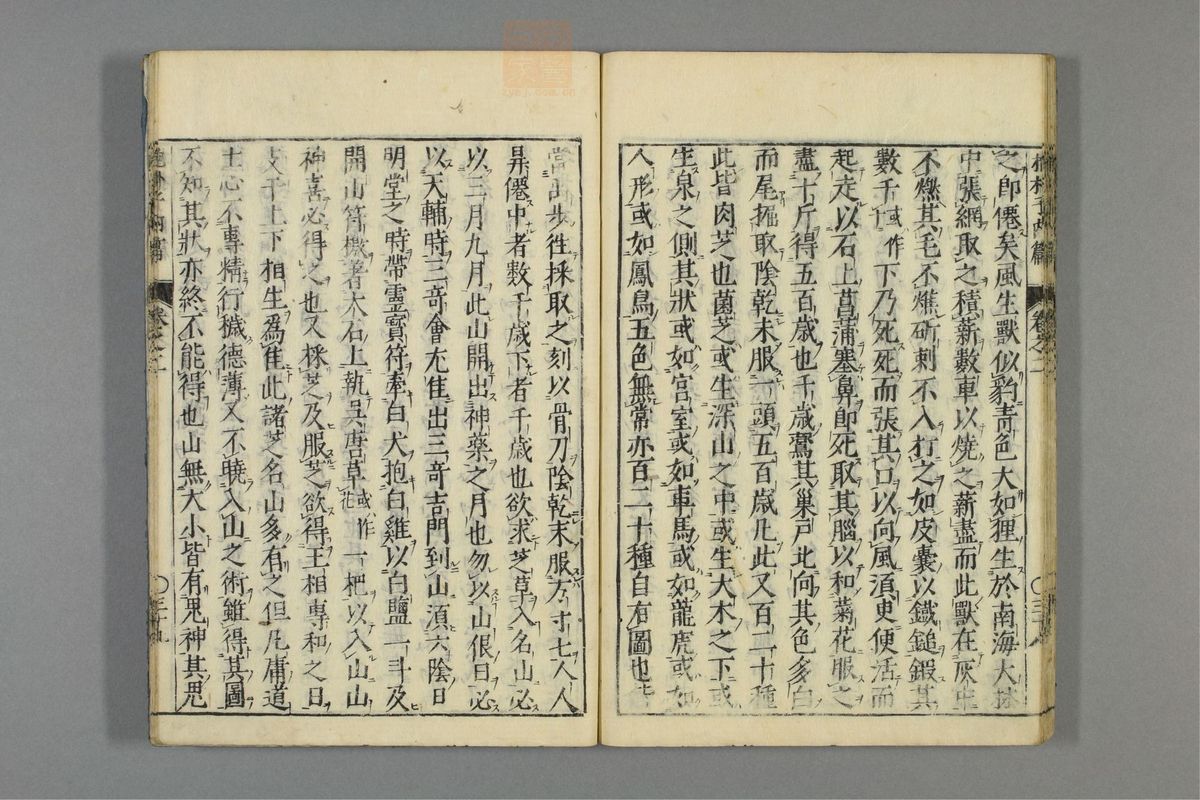 抱朴子内篇 卷之二 〇三十八
之即僊矣風生獸似豹青色大如狸生於南海大林
中張網取之積薪數車以燒之薪盡而此獸在灰中
不燃其毛不燋斫刺不入打之如皮囊以鐵鎚鍜其
數千或作下乃死死而張其口以向風須臾便活而
起走以石上菖蒲塞鼻即死取其腦以和菊花服之
盡十斤得五百歲也千歲鷰其巢戸北向其色多白
而尾掘取陰乾末服一頭五百歲凡此又百二十種
此皆肉芝也菌芝或生深山之中或生大木之下或
生泉之側其狀或如宮室或如車馬或如龍虎或如
人形或如鳳鳥五色無常亦百二十種自有圖也皆
當禹步徃採取之刻以骨刀陰乾末服方寸七人人
昇僊中者數千歲下者千歲也欲求芝草入名山必
以三月九月此山開出神藥之月也勿以山佷日必
以天輔時三竒會尤隹出三竒吉門到山須六陰日
明堂之時帶靈寳符牽白犬抱白雞以白鹽一斗及
開山符檄著大石上執呉唐草或作花一把以入山山
神喜必得之也又採芝及服芝欲得王相專和之日
支干上下相生爲隹此諸芝名山多有之但凡庸道
士心不專精行穢德薄又不曉入山之術雖得其圖
不知其狀亦終不能得也山無大小皆有鬼神其鬼
抱朴子内篇 卷之二 〇三十九